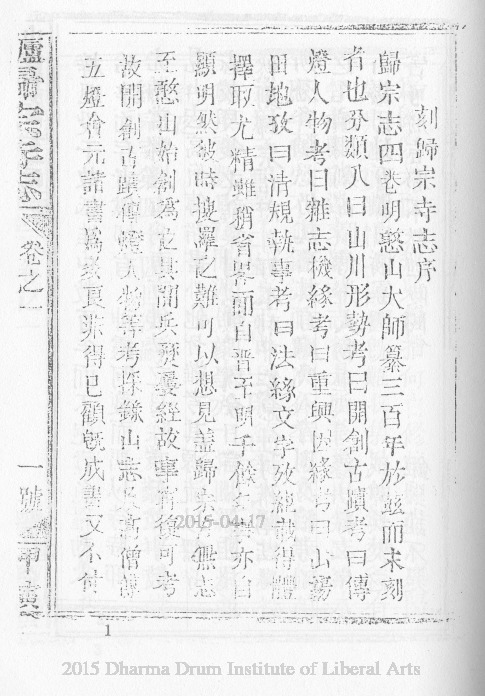 刻歸宗寺志序
歸宗志四卷明憨山大師纂三百年於茲而未刻
者也分類八曰山川形勢考曰開創古蹟考曰傳
燈人物考曰雜志機緣考曰重興因緣考曰山場
田地攷曰清規執事考曰法緣文字攷純哉得體
擇取尤精雖稍省畧而自晉至明千餘年亦自
顯明然彼時搜羅之難可以想見蓋歸宗舊無志
至憨山始創為之其間兵燹屢經故事有復可考
故開創古蹟傳燈人物等考採錄山志及高僧傳
五燈會元諸書為多良非得已顧既成書又不付
廬山歸宗寺志
卷之一
一號
甲寅
2015-04-17
1
2015 Dharma Drum Institute of Liberal Arts